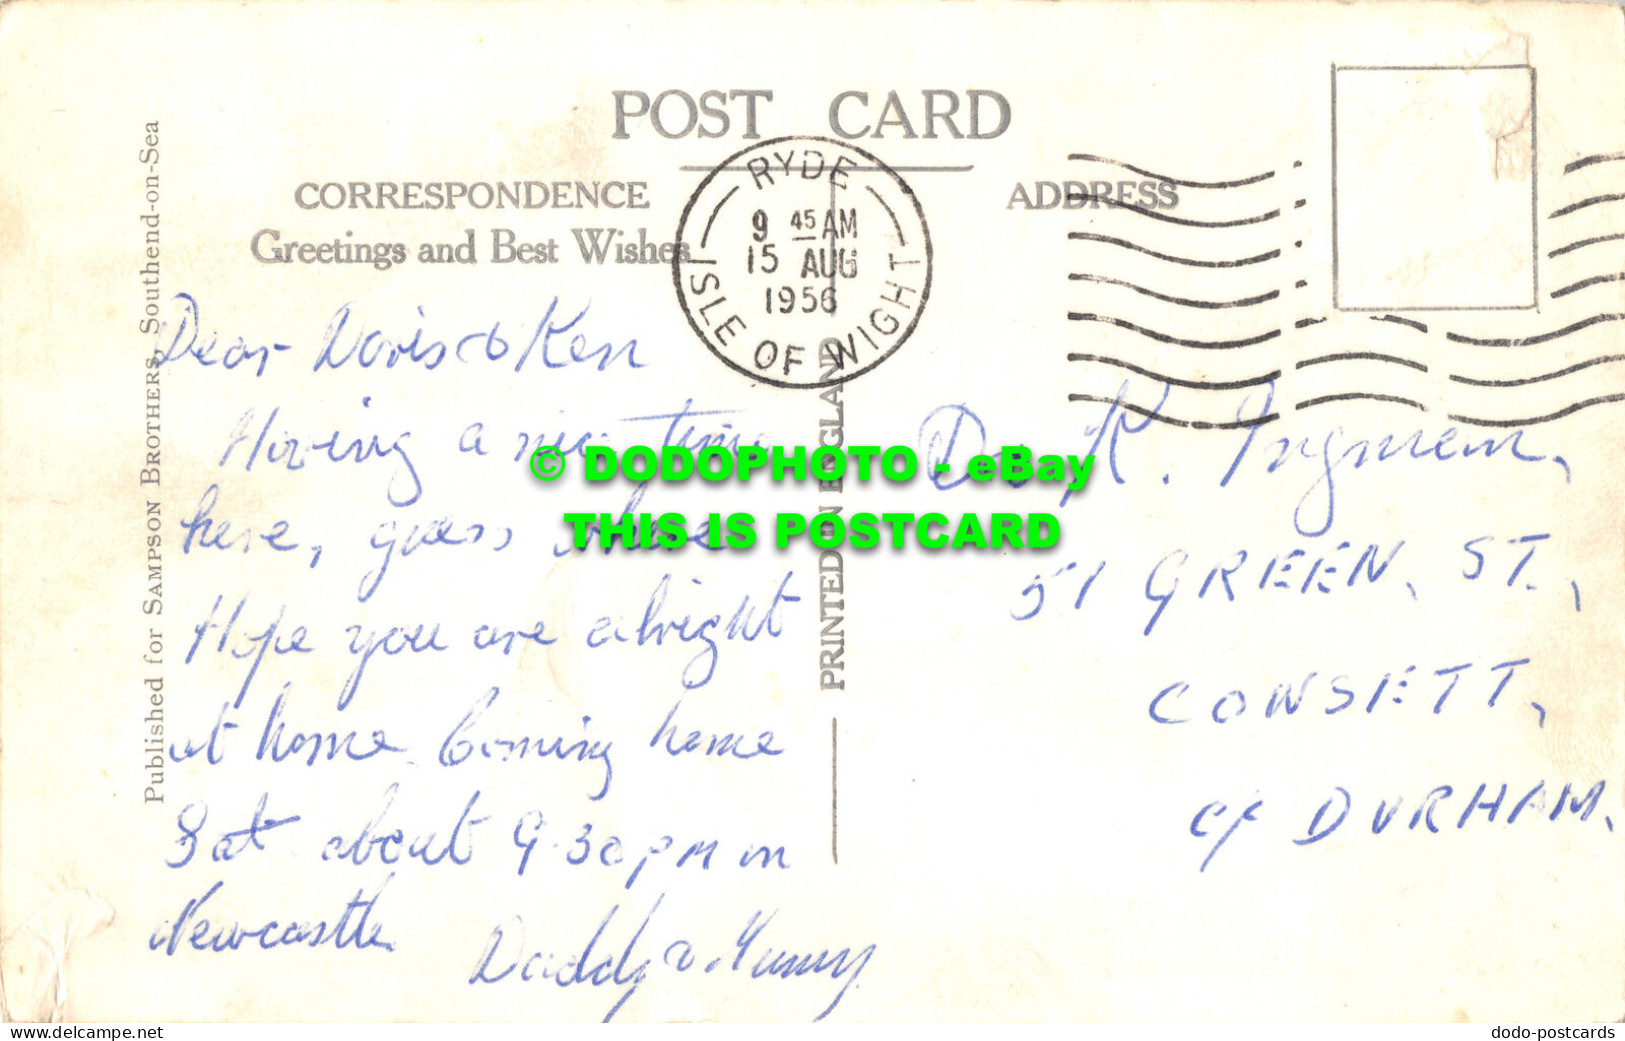 POST CARD
CORRESPONDENCE
Greetings and Best Wishes
ADDRESS
RYDE
9 45 AM
15 AUG
1956
ISLE OF WIGHT
Published for SAMPSON BROTHERS, Southend-on-Sea
PRINTED IN ENGLAND
Dear Doris & Ken
Having a nice time
here, guess where
Hope you are alright
at home. Coming home
Sat about 9.30pm in
Newcastle
Daddy & Mummy
R.
51 GREEN. ST.,
CONSETT,
C/ DURHAM.
© DODOPHOTO - eBay
THIS IS POSTCARD
www.delcampe.net
dodo-postcards